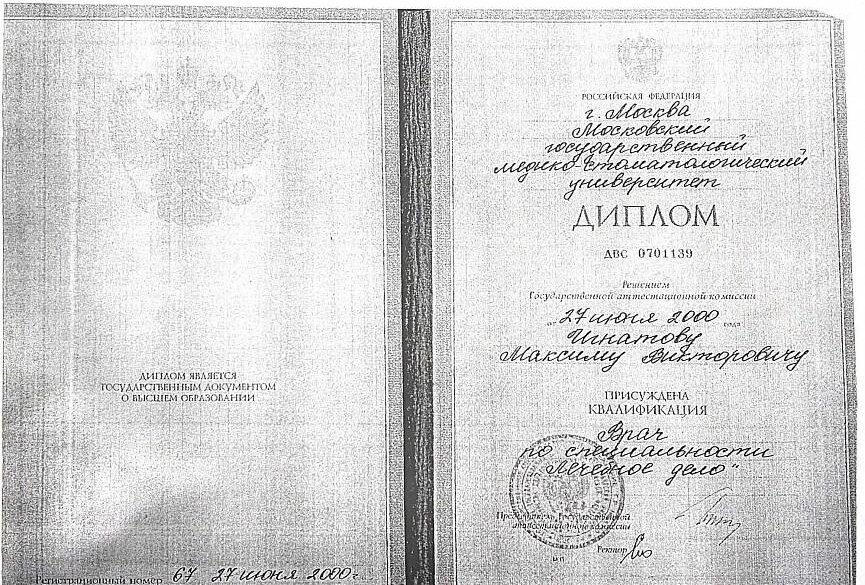 ДИПЛОМ ЯВЛЯЕТСЯ
ГОСУДАРСТВЕННЫМ ДОКУМЕНТОМ
О ВЫСШЕМ ОБРАЗОВАНИИ
Регистрационный номер 67 27 июня 2000 г.
РОССИЙСКАЯ ФЕДЕРАЦИЯ
г. Москва
Московский
государственный
медико-стоматологический
университет
ДИПЛОМ
ДВС 0701139
Решением
Государственной аттестационной комиссии
от 27 июня 2000 года
Игнатову
Максиму Викторовичу
ПРИСУЖДЕНА
КВАЛИФИКАЦИЯ
Врач
по специальности
"Лечебное дело"
Председатель Государственной
аттестационной комиссии
Ректор
М.П.